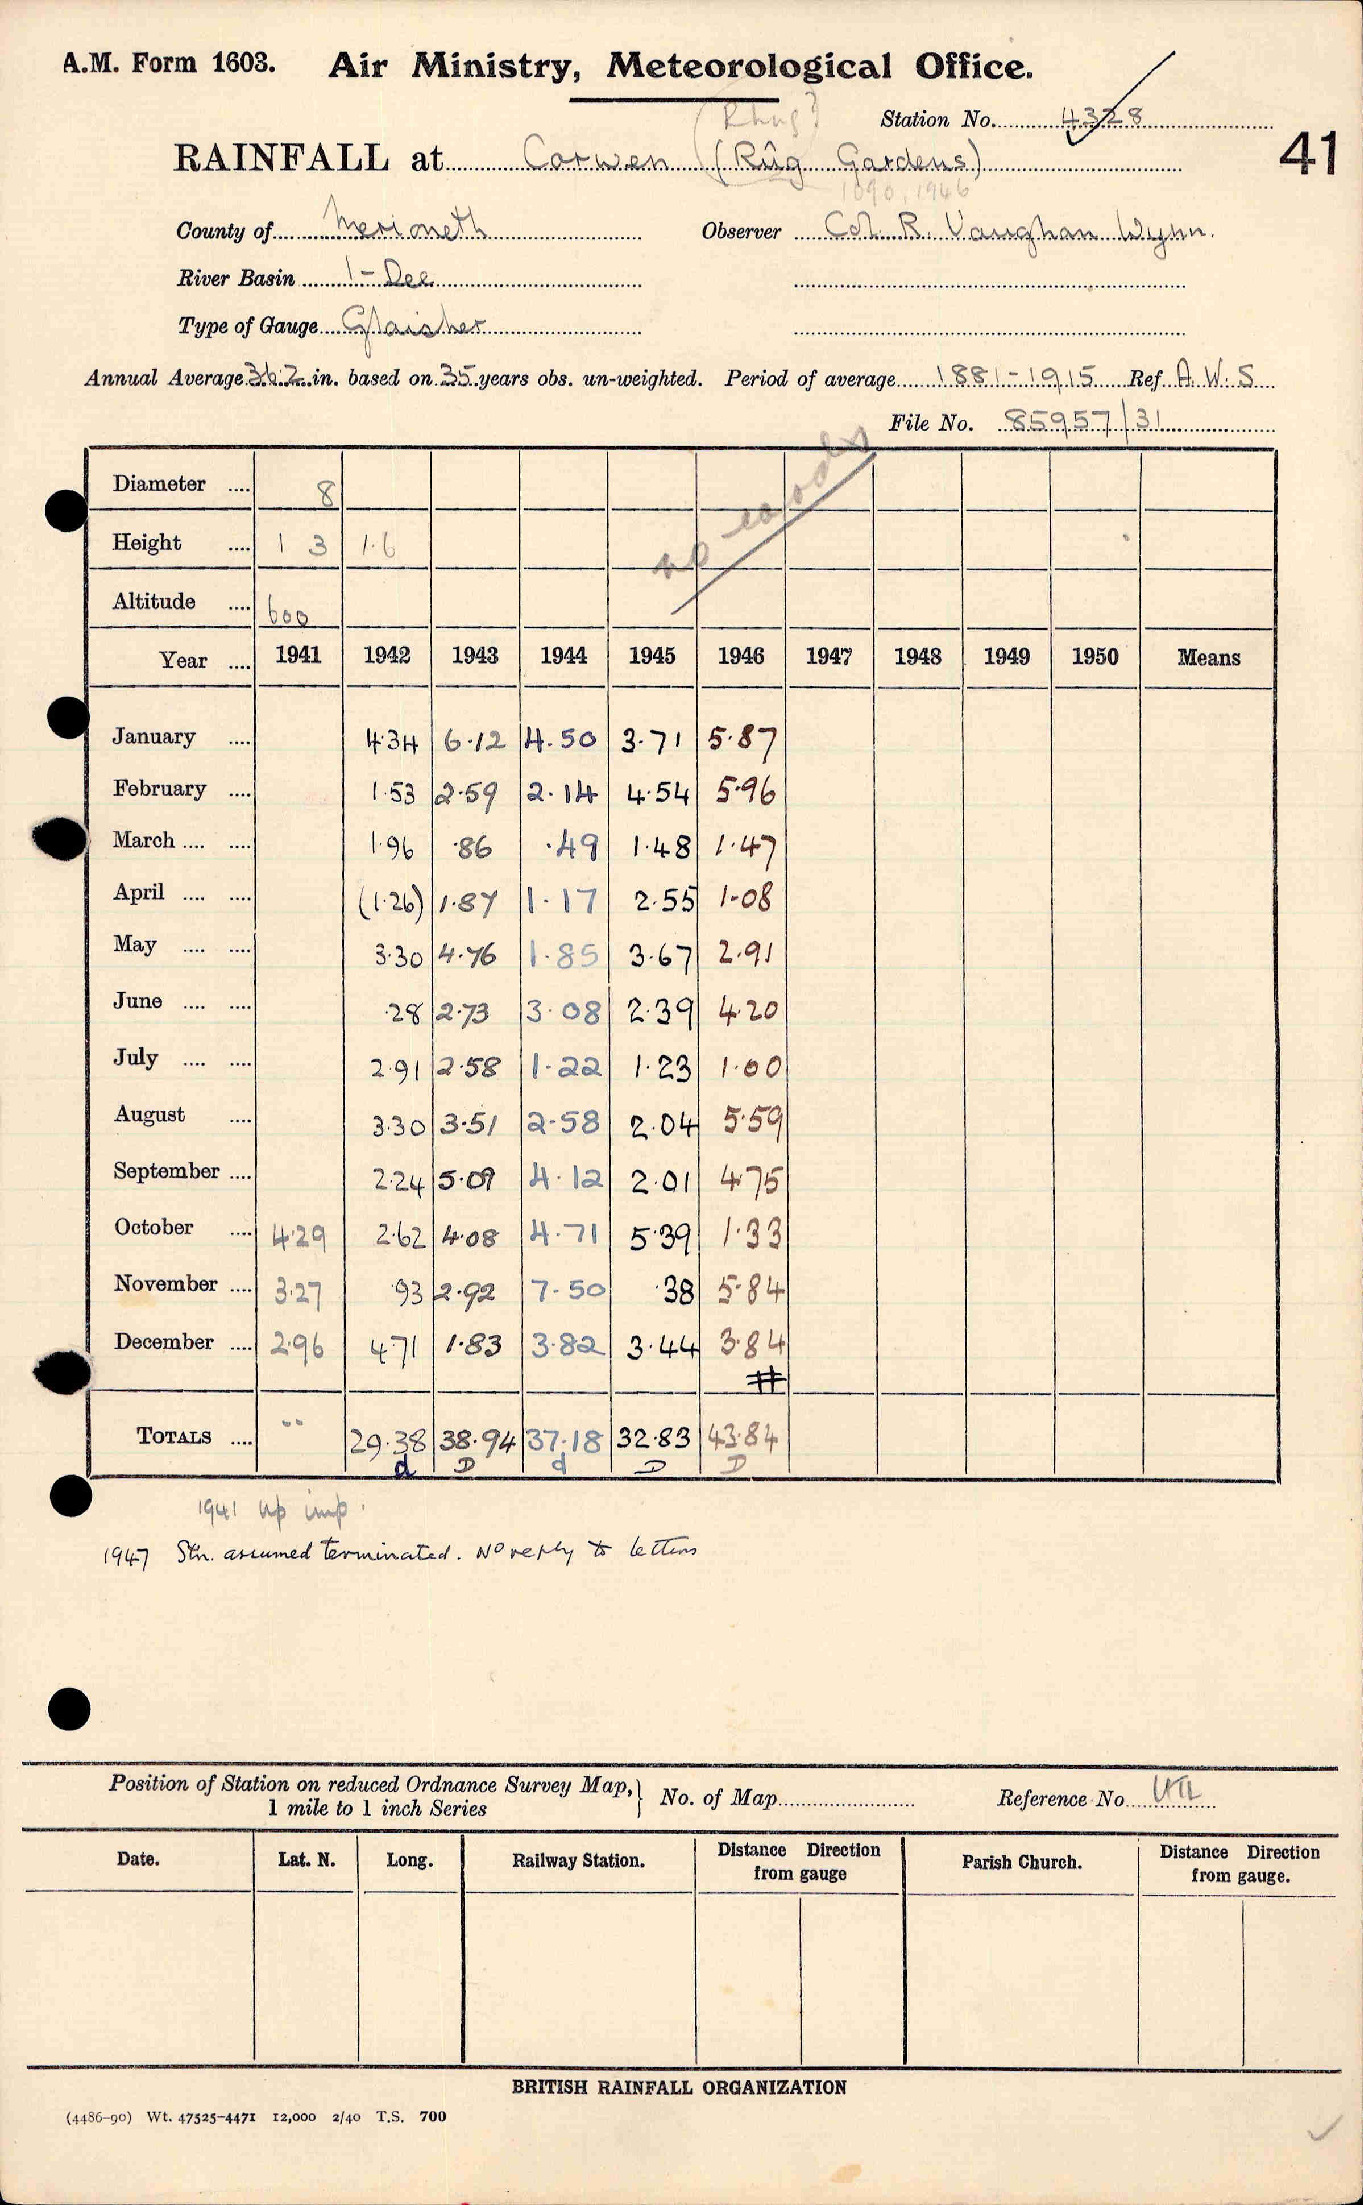 A.M. Form 1603. Air Ministry, Meteorological Office.
(Rhug?
Station No. 4328
41
RAINFALL at Corwen (Rûg Gardens)
1090, 1946
County of Merioneth Observer Col. R. Vaughan Wynn.
River Basin 1-Dee
Type of Gauge Glaisher
Annual Average 36.2 in. based on 35 years obs. un-weighted. Period of average 1881-1915 Ref A.W.S
File No. 85957/31
Diameter .... 8
Height .... 1 3 1.6
no cards
Altitude .... 600
Year .... 1941 1942 1943 1944 1945 1946 1947 1948 1949 1950 Means
January .... 4.34 6.12 4.50 3.71 5.87
February .... 1.53 2.59 2.14 4.54 5.96
March .... .... 1.96 .86 .49 1.48 1.47
April .... .... (1.26) 1.87 1.17 2.55 1.08
May .... .... 3.30 4.76 1.85 3.67 2.91
June .... .... .28 2.73 3.08 2.39 4.20
July .... .... 2.91 2.58 1.22 1.23 1.00
August .... 3.30 3.51 2.58 2.04 5.59
September .... 2.24 5.09 4.12 2.01 4.75
October .... 4.29 2.62 4.08 4.71 5.39 1.33
November .... 3.27 .93 2.92 7.50 .38 5.84
December .... 2.96 4.71 1.83 3.82 3.44 3.84
#
TOTALS .... .. 29.38 38.94 37.18 32.83 43.84
d D d D D
1941 up imp.
1947 Stn. assumed terminated. No reply to letters
Position of Station on reduced Ordnance Survey Map,} No. of Map Reference No
1 mile to 1 inch Series
Date. Lat. N. Long. Railway Station. Distance Direction from gauge Parish Church. Distance Direction from gauge.
BRITISH RAINFALL ORGANIZATION
(4486-90) Wt. 47525-4471 12,000 2/40 T.S. 700